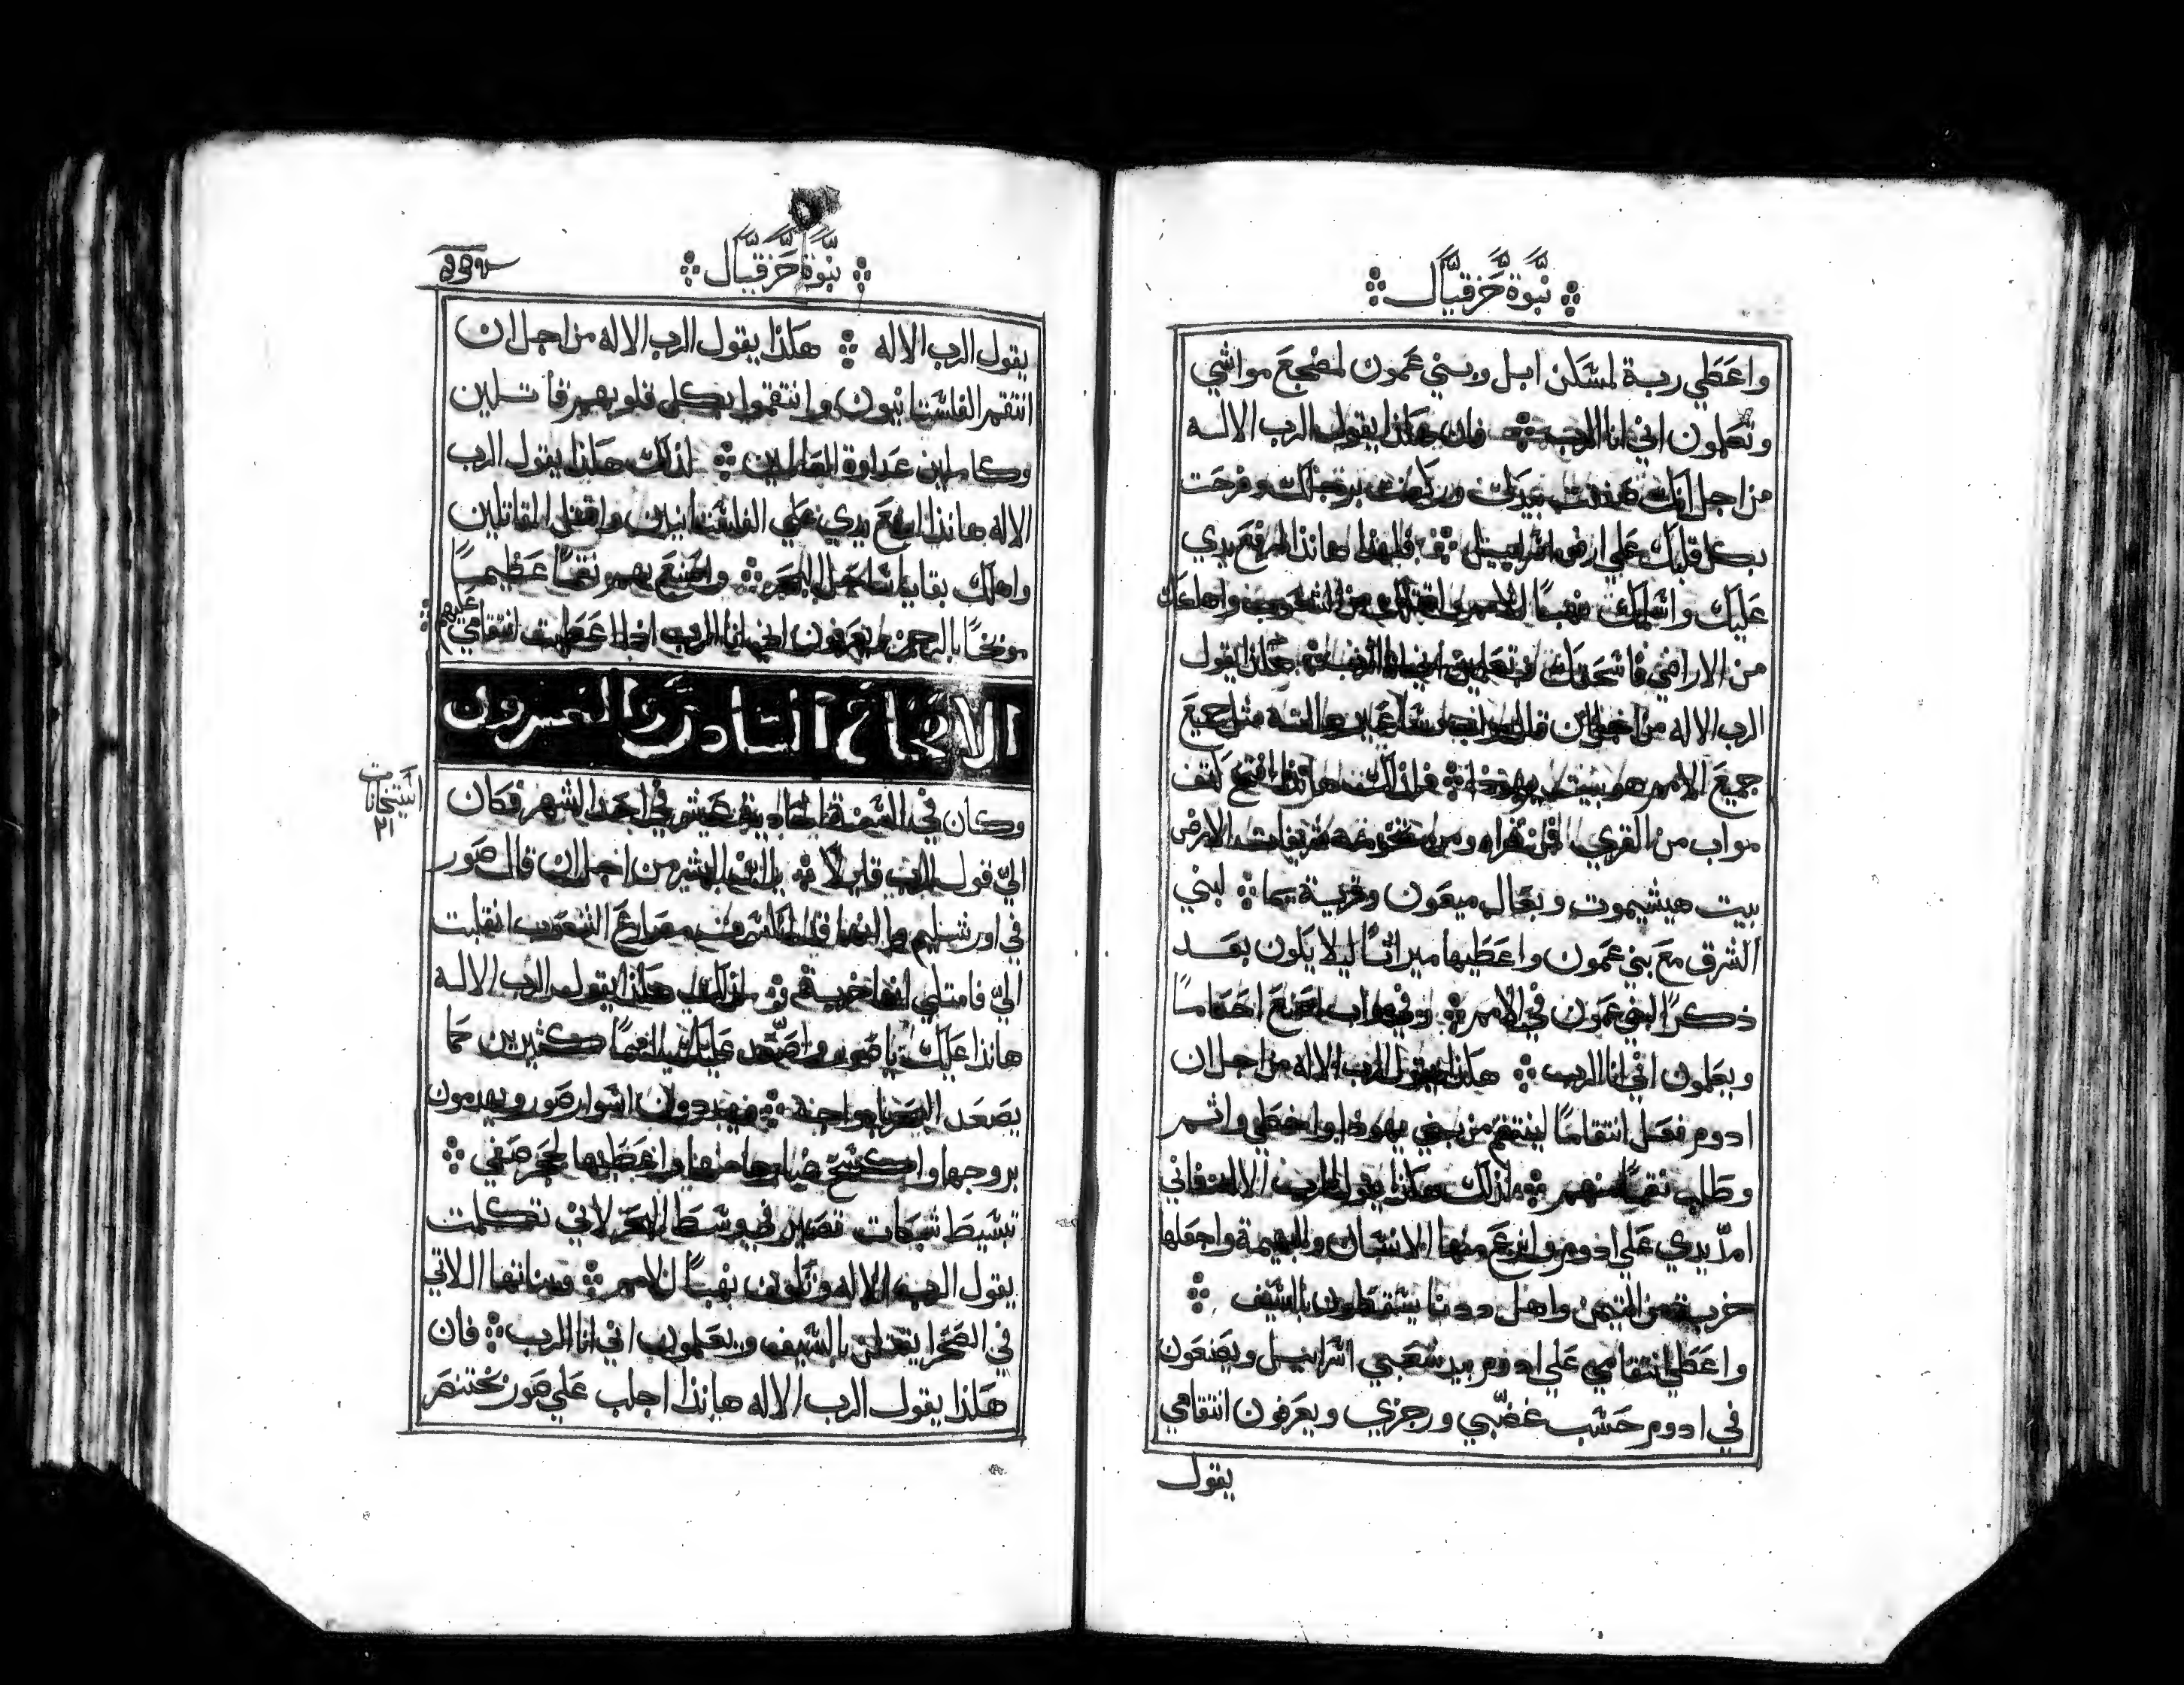 نبوة حزقيال
واعطي ربة لمسكن ابل وبني عمون لمضجع مواشي
وتعلمون اني انا الرب فان هكذا يقول الرب الاله
من اجل انك صفقت بيدك وركضت برجلك وفرحت
بكل قلبك علي ارض اسراييل فلهذا هانذا ارفع يدي
عليك واسلمك نهبًا للامم واقتلك من الشعوب واهلكك
من الاراضي واسحقك وتعلمين اني انا الرب هكذا يقول
الرب الاله من اجل ان قال مواب وساعير هاانه مثل جميع
جميع الامم هو بيت يهوذا فلذلك هانذا افتح كتف
مواب من القري من قراه ومن تخومه شريفات الارض
بيت هيشيموت وبعال ميعون وقرية يما لبني
الشرق مع بني عمون واعطيها ميراثًا ليلا يكون بعد
ذكرًا لبني عمون في الامم وفي مواب اصنع احكامًا
ويعلمون اني انا الرب هكذا يقول الرب الاله من اجل ان
ادوم فعل انتقامًا لينتقم من بني يهوذا واخطي واثم
وطلب نقمًا منهم لذلك هكذا يقول الرب الاله فاني
امدّ يدي علي ادوم وانزع منها الانسان والبهيمة واجعلها
خربة من التيمن واهل ددنا يسقطون بالسيف
واعطي انتقامي علي ادوم بيد شعبي اسراييل ويصنعون
في ادوم حسب غضبي ورجزي ويعرفون انتقامي
يقول
نبوة حزقيال
يقول الرب الاله هكذا يقول الرب الاله من اجل ان
انتقم الفلسطانيون وانتقموا بكل قلوبهم قاتلين
وكاملين عداوة لذلك هكذا يقول الرب
الاله هانذا ارفع يدي علي الفلسطانيين واقتل المقاتلين
واهلك بقايا ساحل البحر واصنع بهم نقمًا عظيمًا
موبخًا بالرجز ويعرفون اني انا الرب اذا اعطيت انتقامي عليهم
الاصحاح السادس والعشرون
وكان في السنة الحادية عشر في احد الشهر فكان
اليّ قول الرب قايلاً يا ابن البشر من اجل ان قال صور
في اورشليم مصارع الشعوب انقلبت
اليّ فامتلي انها خربة لذلك هكذا يقول الرب الاله
هانذا عليك يا صور واصعّد عليك اممًا كثيرين كما
يصعد البحر بامواجه فيهدون اسوار صور ويهدمون
بروجها واكسح منها واعطيها لحجر صفي
تبسيط شبكات تصير في وسط البحر لاني تكلمت
يقول الرب الاله وتكون نهبًا للامم وبناتها اللاتي
في الصحرا يقتلن بالسيف ويعلمون اني انا الرب فان
هكذا يقول الرب الاله هانذا اجلب علي صور بختنصر